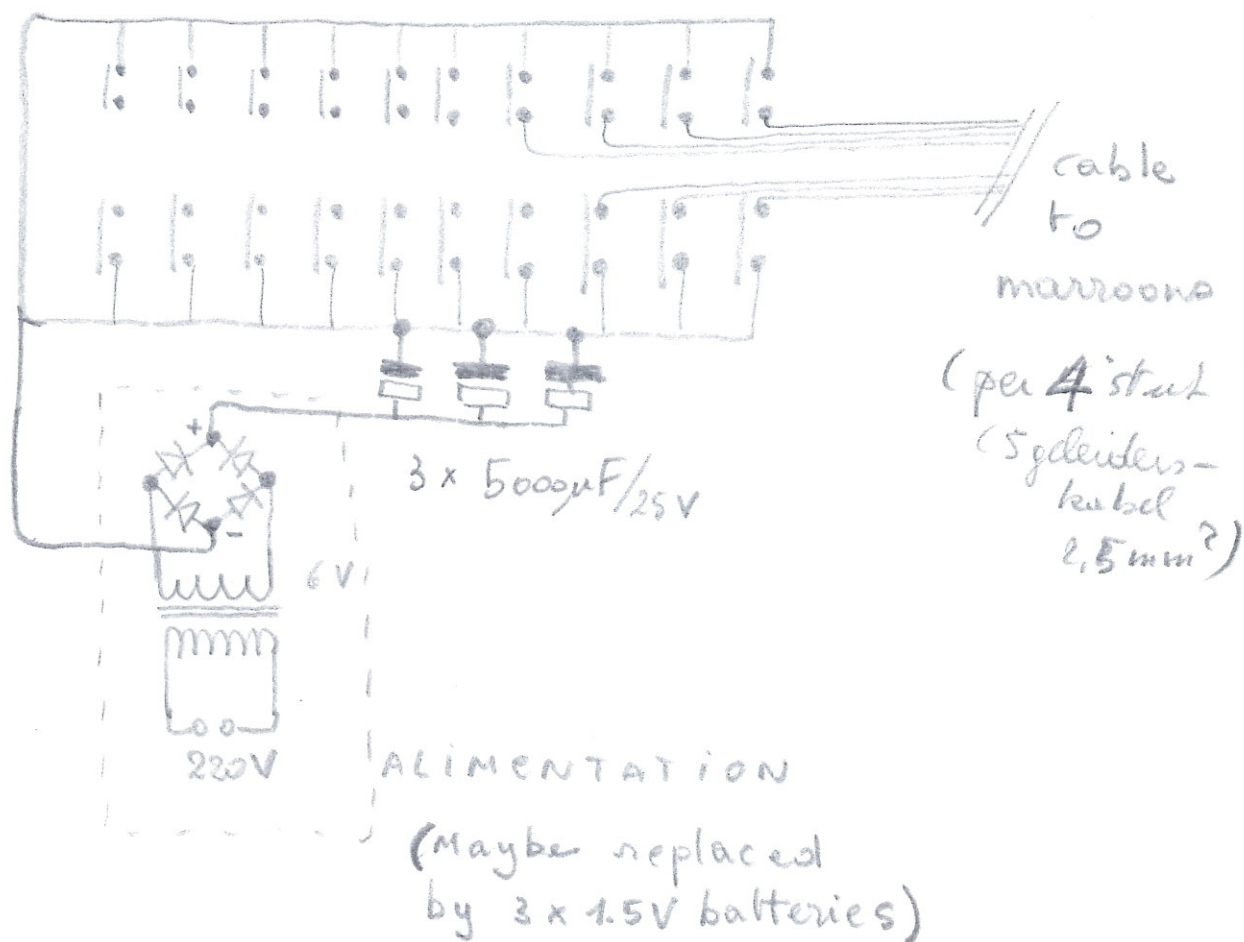 cable
to
marroons
(per 4 stuk
(5 geleiders-
kabel
2,5 mm²)
+
3 x 5000µF/25V
-
6V
220V
ALIMENTATION
(Maybe replaced
by 3 x 1.5V batteries)